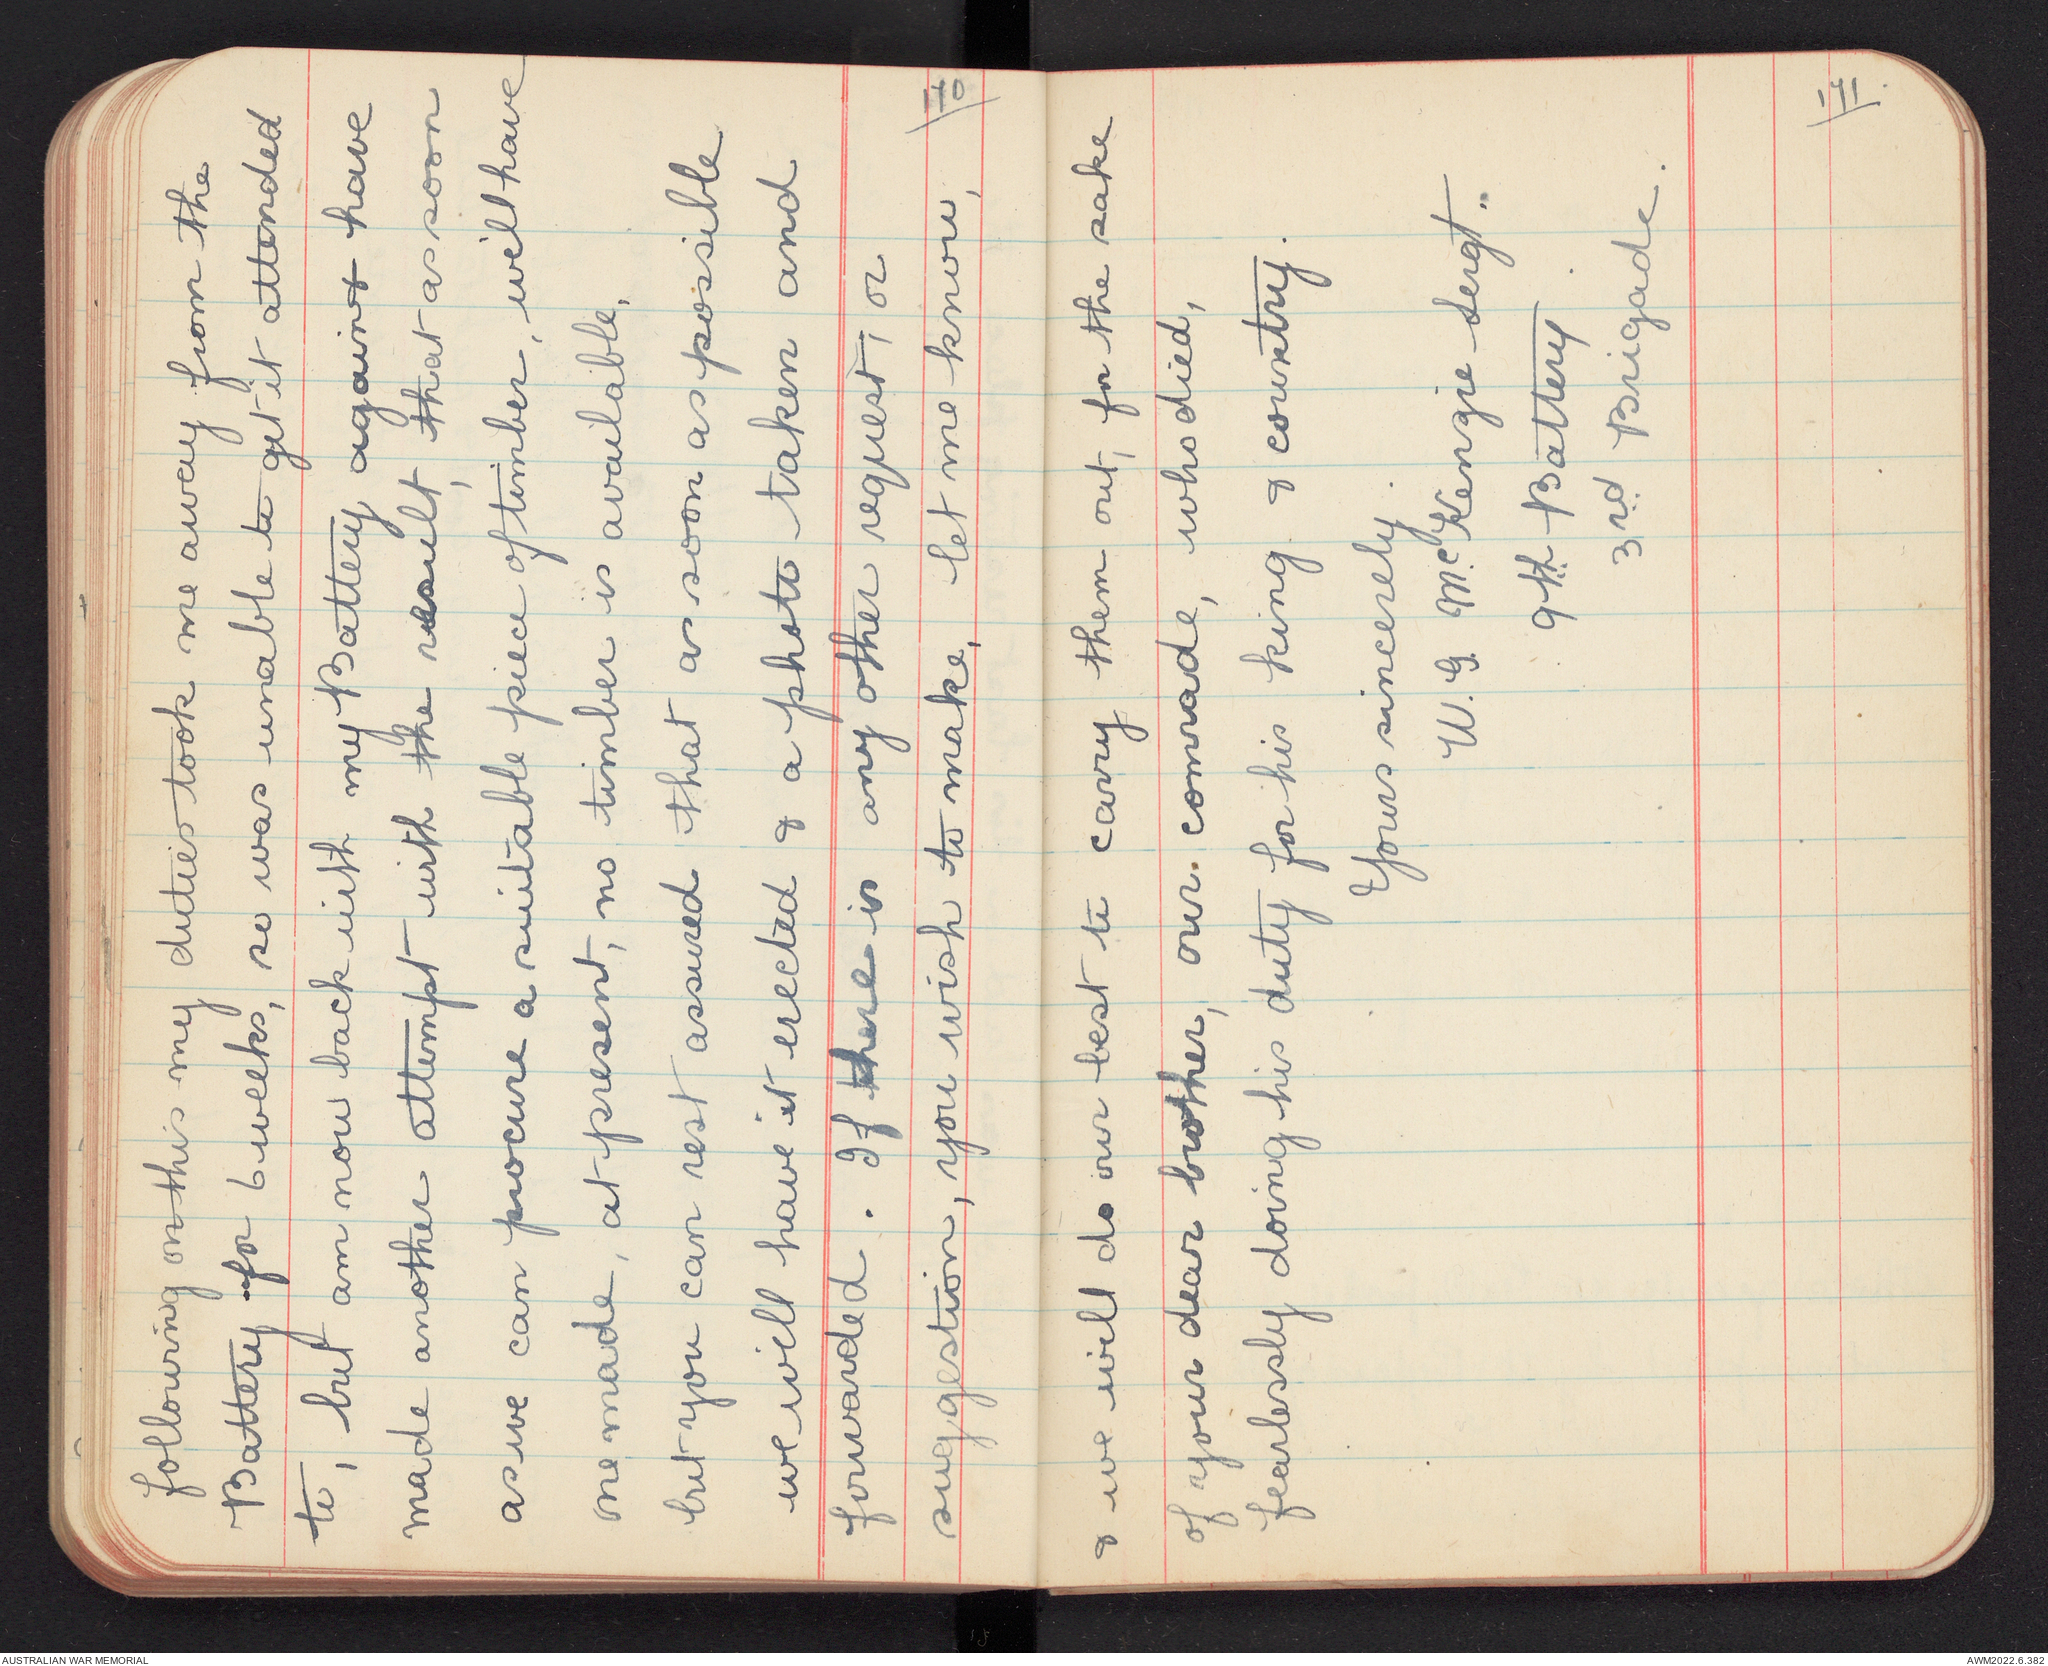 following on this my duties took me away from the
Battery for 6 weeks, so was unable to get it attended
to, but am now back with my Battery again & have
made another attempt with the result, that as soon
as we can procure a suitable piece of timber, will have
one made, at present, no timber is available,
but you can rest assured that as soon as possible
we will have it erected & a photo taken and
forwarded. If there is any other request, or
suggestion, you wish to make, let me know,
10
& we will do our best to carry them out, for the sake
of your dear brother, our comrade, who died,
fearlessly doing his duty for his king & country.
Yours sincerely.
W. G. McKenzie Sergt.
9th Battery
3rd Brigade.
11
AUSTRALIAN WAR MEMORIAL
AWM2022.6.382